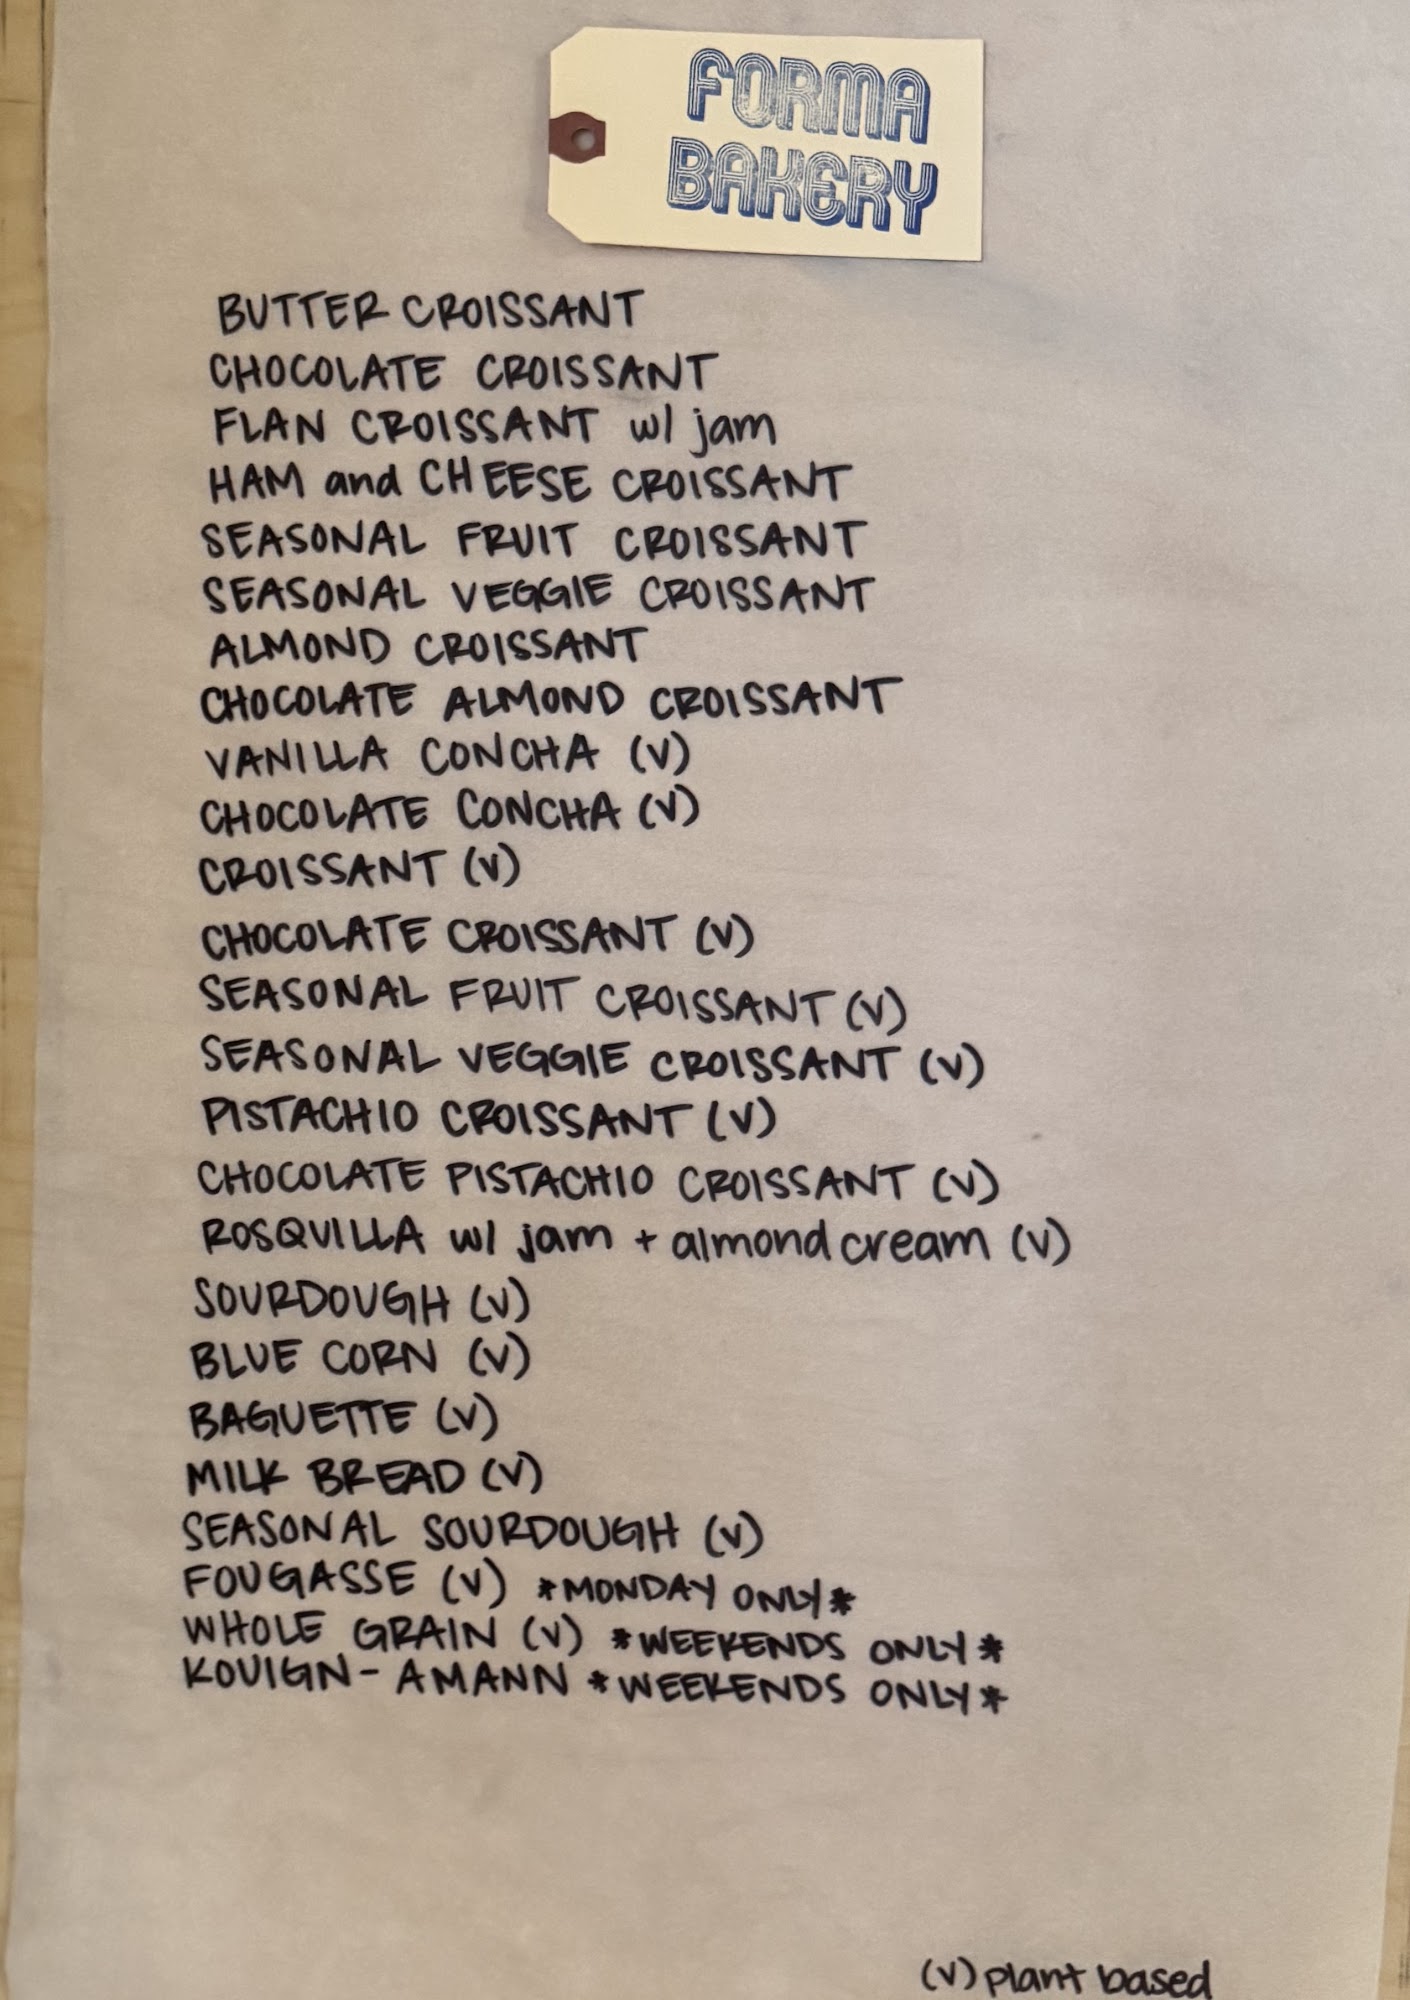 FORMA
BAKERY
BUTTER CROISSANT
CHOCOLATE CROISSANT
FLAN CROISSANT w/ jam
HAM and CHEESE CROISSANT
SEASONAL FRUIT CROISSANT
SEASONAL VEGGIE CROISSANT
ALMOND CROISSANT
CHOCOLATE ALMOND CROISSANT
VANILLA CONCHA (V)
CHOCOLATE CONCHA (V)
CROISSANT (V)
CHOCOLATE CROISSANT (V)
SEASONAL FRUIT CROISSANT (V)
SEASONAL VEGGIE CROISSANT (V)
PISTACHIO CROISSANT (V)
CHOCOLATE PISTACHIO CROISSANT (V)
ROSQUILLA w/ jam + almond cream (V)
SOURDOUGH (V)
BLUE CORN (V)
BAGUETTE (V)
MILK BREAD (V)
SEASONAL SOURDOUGH (V)
FOUGASSE (V) *MONDAY ONLY*
WHOLE GRAIN (V) *WEEKENDS ONLY*
KOUIGN-AMANN *WEEKENDS ONLY*
(V) plant based